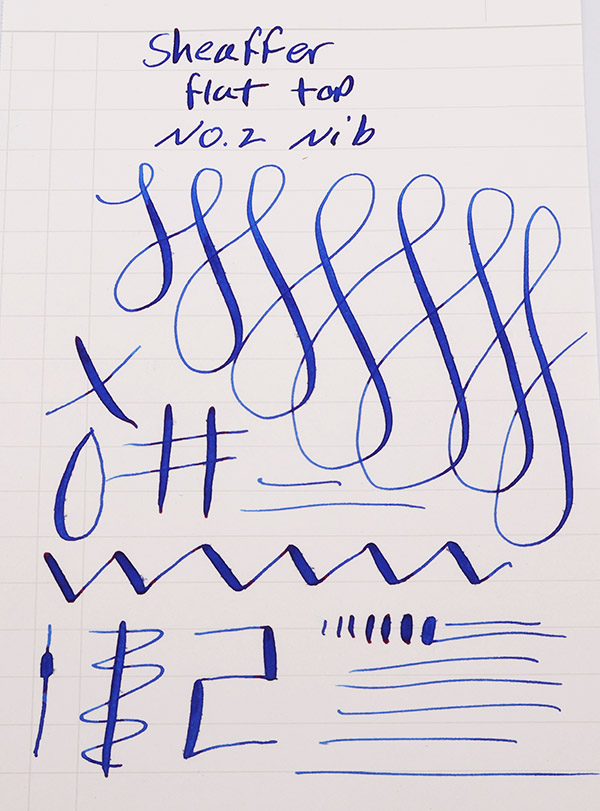 Sheaffer
flat top
NO.2 Nib